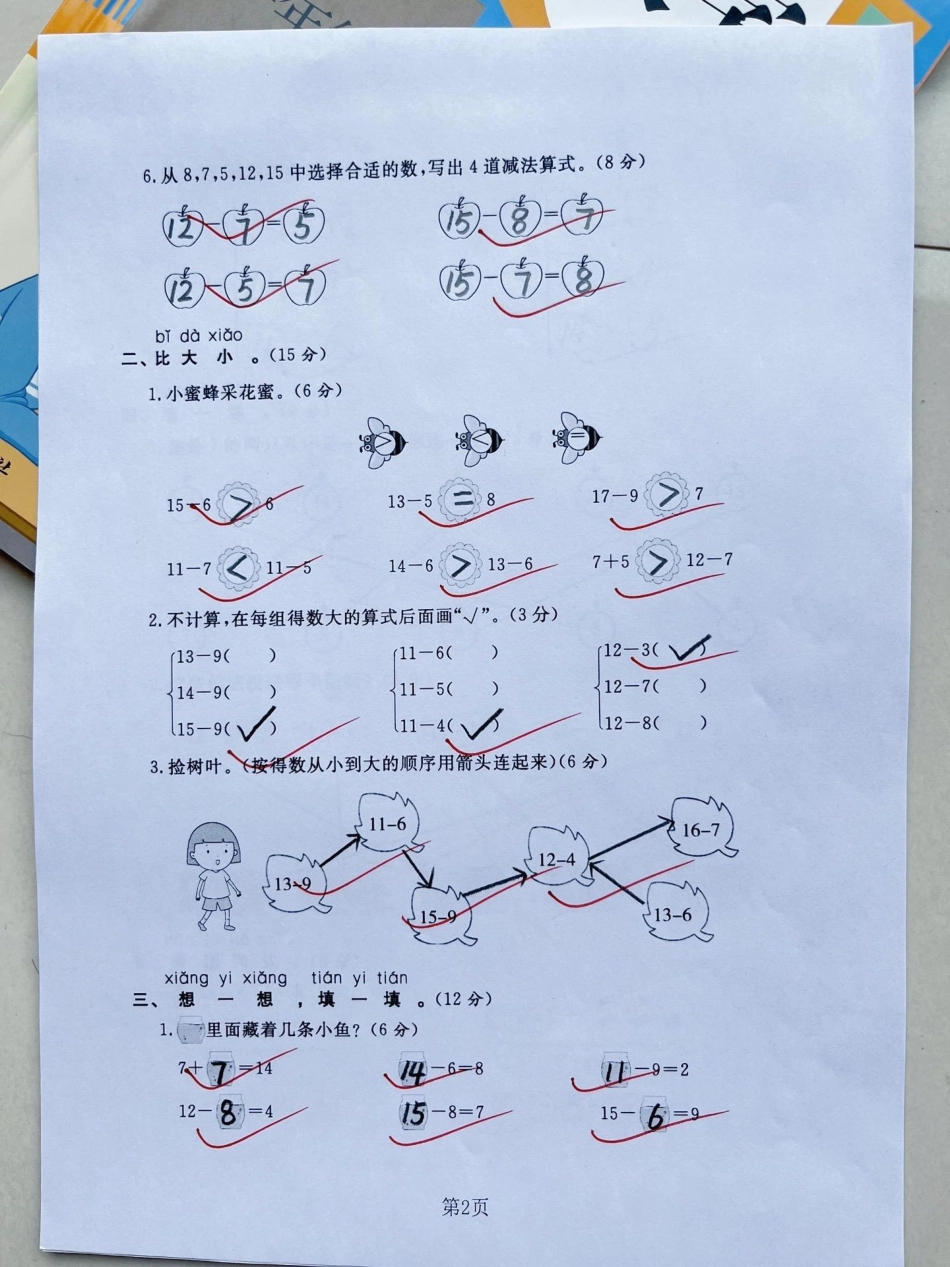 6.从8,7,5,12,15中选择合适的数,写出4道减法算式。(8分)
12-7=5 15-8=7
12-5=7 15-7=8
bǐ dà xiǎo
二、比大小。(15分)
1.小蜜蜂采花蜜。(6分)
> < =
15-6>6 13-5=8 17-9>7
11-7<11-5 14-6>13-6 7+5>12-7
2.不计算,在每组得数大的算式后面画“√”。(3分)
13-9( ) 11-6( ) 12-3(√)
14-9( ) 11-5( ) 12-7( )
15-9(√) 11-4(√) 12-8( )
3.捡树叶。(按得数从小到大的顺序用箭头连起来)(6分)
11-6 16-7
13-9 12-4
15-9 13-6
xiǎng yi xiǎng tián yi tián
三、想一想,填一填。(12分)
1. 里面藏着几条小鱼?(6分)
7+7=14 14-6=8 11-9=2
12-8=4 15-8=7 15-6=9
第2页